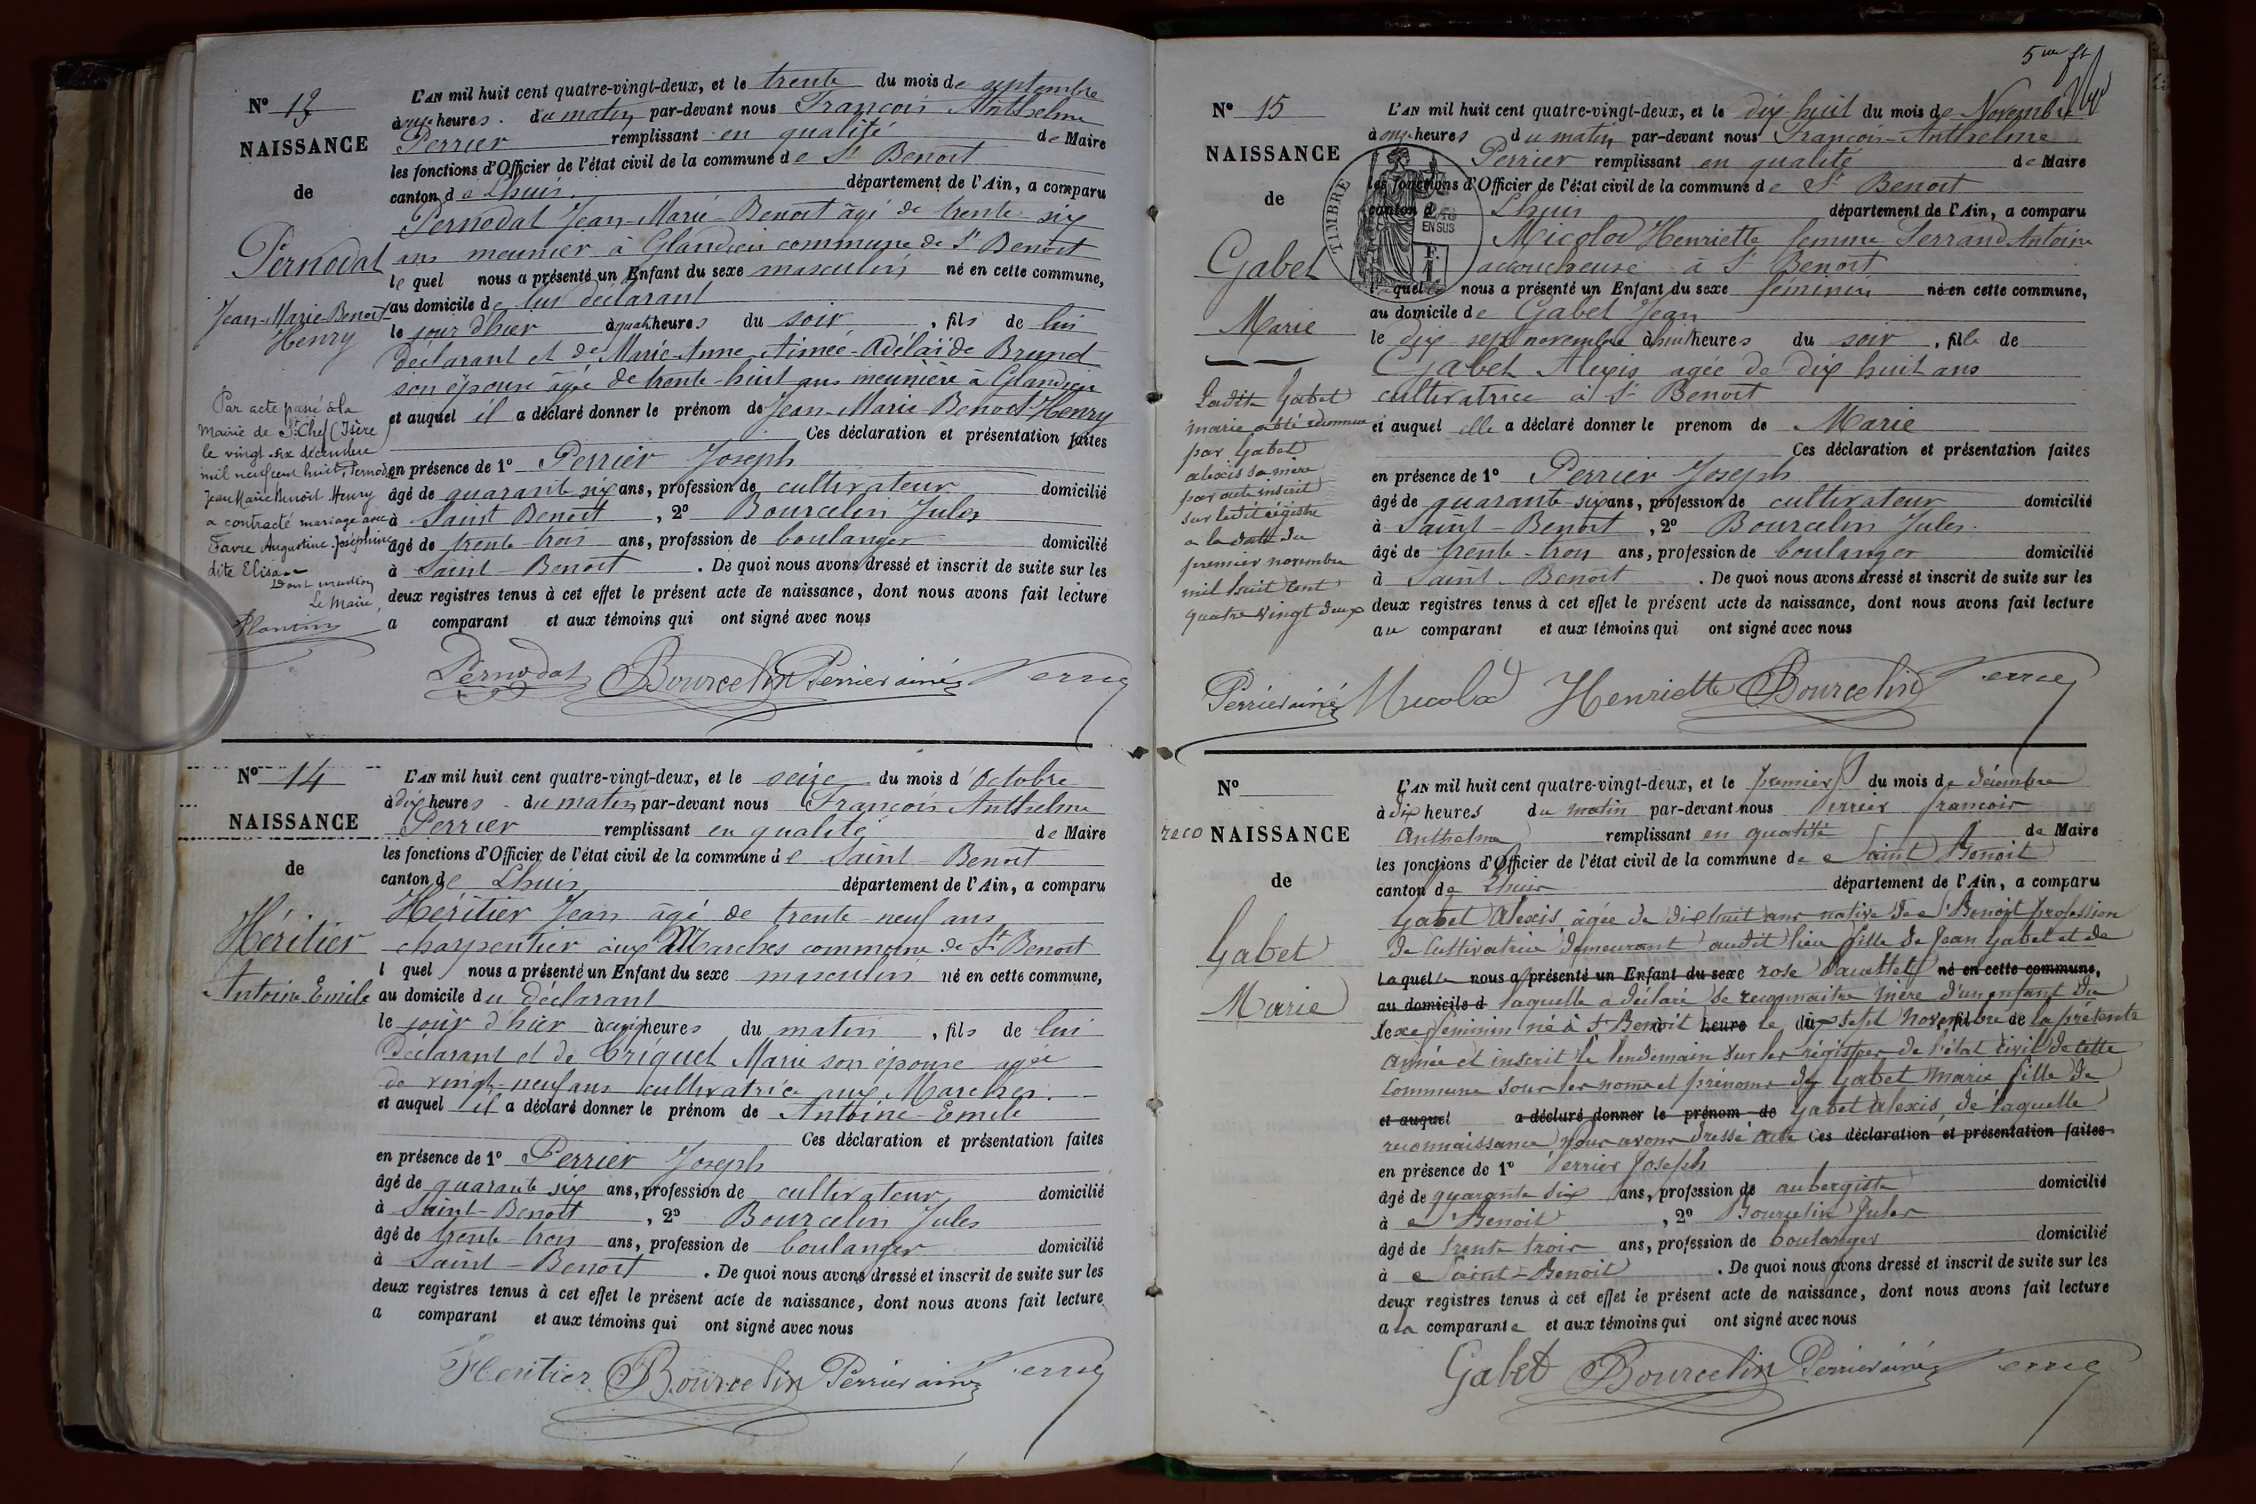 N° 13
NAISSANCE
de
Pernodat
Jean-Marie-Benoit
Henry
Par acte passé à la
Mairie de St Chef (Isère)
le vingt-six décembre
mil neuf cent huit, Pernodat
Jean Marie Benoit Henry
a contracté mariage avec
Favre Augustine-Joséphine
dite Elisa
Dont mention
Le Maire,
L'AN mil huit cent quatre-vingt-deux, et le trente du mois de septembre
à onze heures du matin par-devant nous François Anthelme
Perrier remplissant en qualité de Maire
les fonctions d'Officier de l'état civil de la commune de St Benoit
canton de Lhuis département de l'Ain, a comparu
Pernodat Jean-Marie-Benoit âgé de trente-six
ans meunier à Glandieu commune de St Benoit
le quel nous a présenté un Enfant du sexe masculin né en cette commune,
au domicile de lui déclarant
le jour d'hier à quatre heures du soir, fils de lui
déclarant et de Marie-Anne Aimée-Adélaïde Brund
son épouse âgée de trente-huit ans meunière à Glandieu
et auquel il a déclaré donner le prénom de Jean-Marie Benoit-Henry
Ces déclaration et présentation faites
en présence de 1° Perrier Joseph
âgé de quarante six ans, profession de cultivateur domicilié
à Saint Benoit, 2° Bourcelin Jules
âgé de trente-trois ans, profession de boulanger domicilié
à Saint-Benoit. De quoi nous avons dressé et inscrit de suite sur les
deux registres tenus à cet effet le présent acte de naissance, dont nous avons fait lecture
a comparant et aux témoins qui ont signé avec nous
Pernodat Bourcelin Perrier ainé Perrier
N° 14
NAISSANCE
de
Héritier
Antoine-Emile
L'AN mil huit cent quatre-vingt-deux, et le seize du mois d'Octobre
à dix heures du matin par-devant nous François Anthelme
Perrier remplissant en qualité de Maire
les fonctions d'Officier de l'état civil de la commune de Saint-Benoit
canton de Lhuis département de l'Ain, a comparu
Héritier Jean âgé de trente-neuf ans
charpentier aux Marches commune de St Benoit
l quel nous a présenté un Enfant du sexe masculin né en cette commune,
au domicile du déclarant
le jour d'hier à cinq heures du matin, fils de lui
déclarant et de Criquet Marie son épouse agée
de vingt-neuf ans cultivatrice aux Marches.
et auquel il a déclaré donner le prénom de Antoine-Emile
Ces déclaration et présentation faites
en présence de 1° Perrier Joseph
âgé de quarante six ans, profession de cultivateur domicilié
à Saint-Benoit, 2° Bourcelin Jules
âgé de trente-trois ans, profession de boulanger domicilié
à Saint-Benoit. De quoi nous avons dressé et inscrit de suite sur les
deux registres tenus à cet effet le présent acte de naissance, dont nous avons fait lecture
a comparant et aux témoins qui ont signé avec nous
Heritier Bourcelin Perrier ainé Perrier
5me ft
N° 15
NAISSANCE
de
Gabet
Marie
Ladite Gabet
marie a été reconnue
par Gabet
alexis sa mère
par acte inscrit
sur ledit régistre
a la date du
premier novembre
mil huit cent
quatre vingt deux
TIMBRE
EN SUS
L'AN mil huit cent quatre-vingt-deux, et le dix huit du mois de Novembre
à onze heures du matin par-devant nous François-Anthelme
Perrier remplissant en qualité de Maire
les fonctions d'Officier de l'état civil de la commune de St Benoit
canton d Lhuis département de l'Ain, a comparu
Micolod Henriette femme Ferrand Antoine
accoucheuse à St Benoit
quel nous a présenté un Enfant du sexe feminin né en cette commune,
au domicile de Gabet Jean
le dix sept novembre à huit heures du soir, fille de
Gabet Alexis agée de dix huit ans
cultivatrice à St Benoit
et auquel elle a déclaré donner le prenom de Marie
Ces déclaration et présentation faites
en présence de 1° Perrier Joseph
âgé de quarante-six ans, profession de cultivateur domicilié
à Saint-Benoit, 2° Bourcelin Jules
âgé de trente-trois ans, profession de boulanger domicilié
à Saint-Benoit. De quoi nous avons dressé et inscrit de suite sur les
deux registres tenus à cet effet le présent acte de naissance, dont nous avons fait lecture
au comparant et aux témoins qui ont signé avec nous
Perrier ainé Micolod Henriette Bourcelin Perrier
N°
reco NAISSANCE
de
Gabet
Marie
L'AN mil huit cent quatre-vingt-deux, et le premier du mois de décembre
à dix heures du matin par-devant nous Perrier francois
Anthelme remplissant en qualité de Maire
les fonctions d'Officier de l'état civil de la commune de Saint Benoit
canton de Lhuis département de l'Ain, a comparu
Gabet Alexis, âgée de dix huit ans native de St Benoit profession
de Cultivatrice demeurant audit lieu fille de Jean Gabet et de
laquelle nous a présenté un Enfant du sexe rose né en cette commune,
au domicile d laquelle a déclaré se reconnaitre mère d'un enfant du
sexe feminin né à St Benoit heure le dix sept novembre de la présente
année et inscrit le lendemain sur les régistres de l'état civil de cette
Commune sous les noms et prénoms de Gabet Marie fille de
et auquel a déclaré donner le prénom de Gabet Alexis, de laquelle
reconnaissance nous avons dressé acte Ces déclaration et présentation faites
en présence de 1° Perrier Joseph
âgé de quarante six ans, profession de aubergiste domicilié
à St Benoit, 2° Bourcelin Jules
âgé de trente trois ans, profession de boulanger domicilié
à Saint-Benoit. De quoi nous avons dressé et inscrit de suite sur les
deux registres tenus à cet effet le présent acte de naissance, dont nous avons fait lecture
a la comparante et aux témoins qui ont signé avec nous
Gabet Bourcelin Perrier ainé Perrier